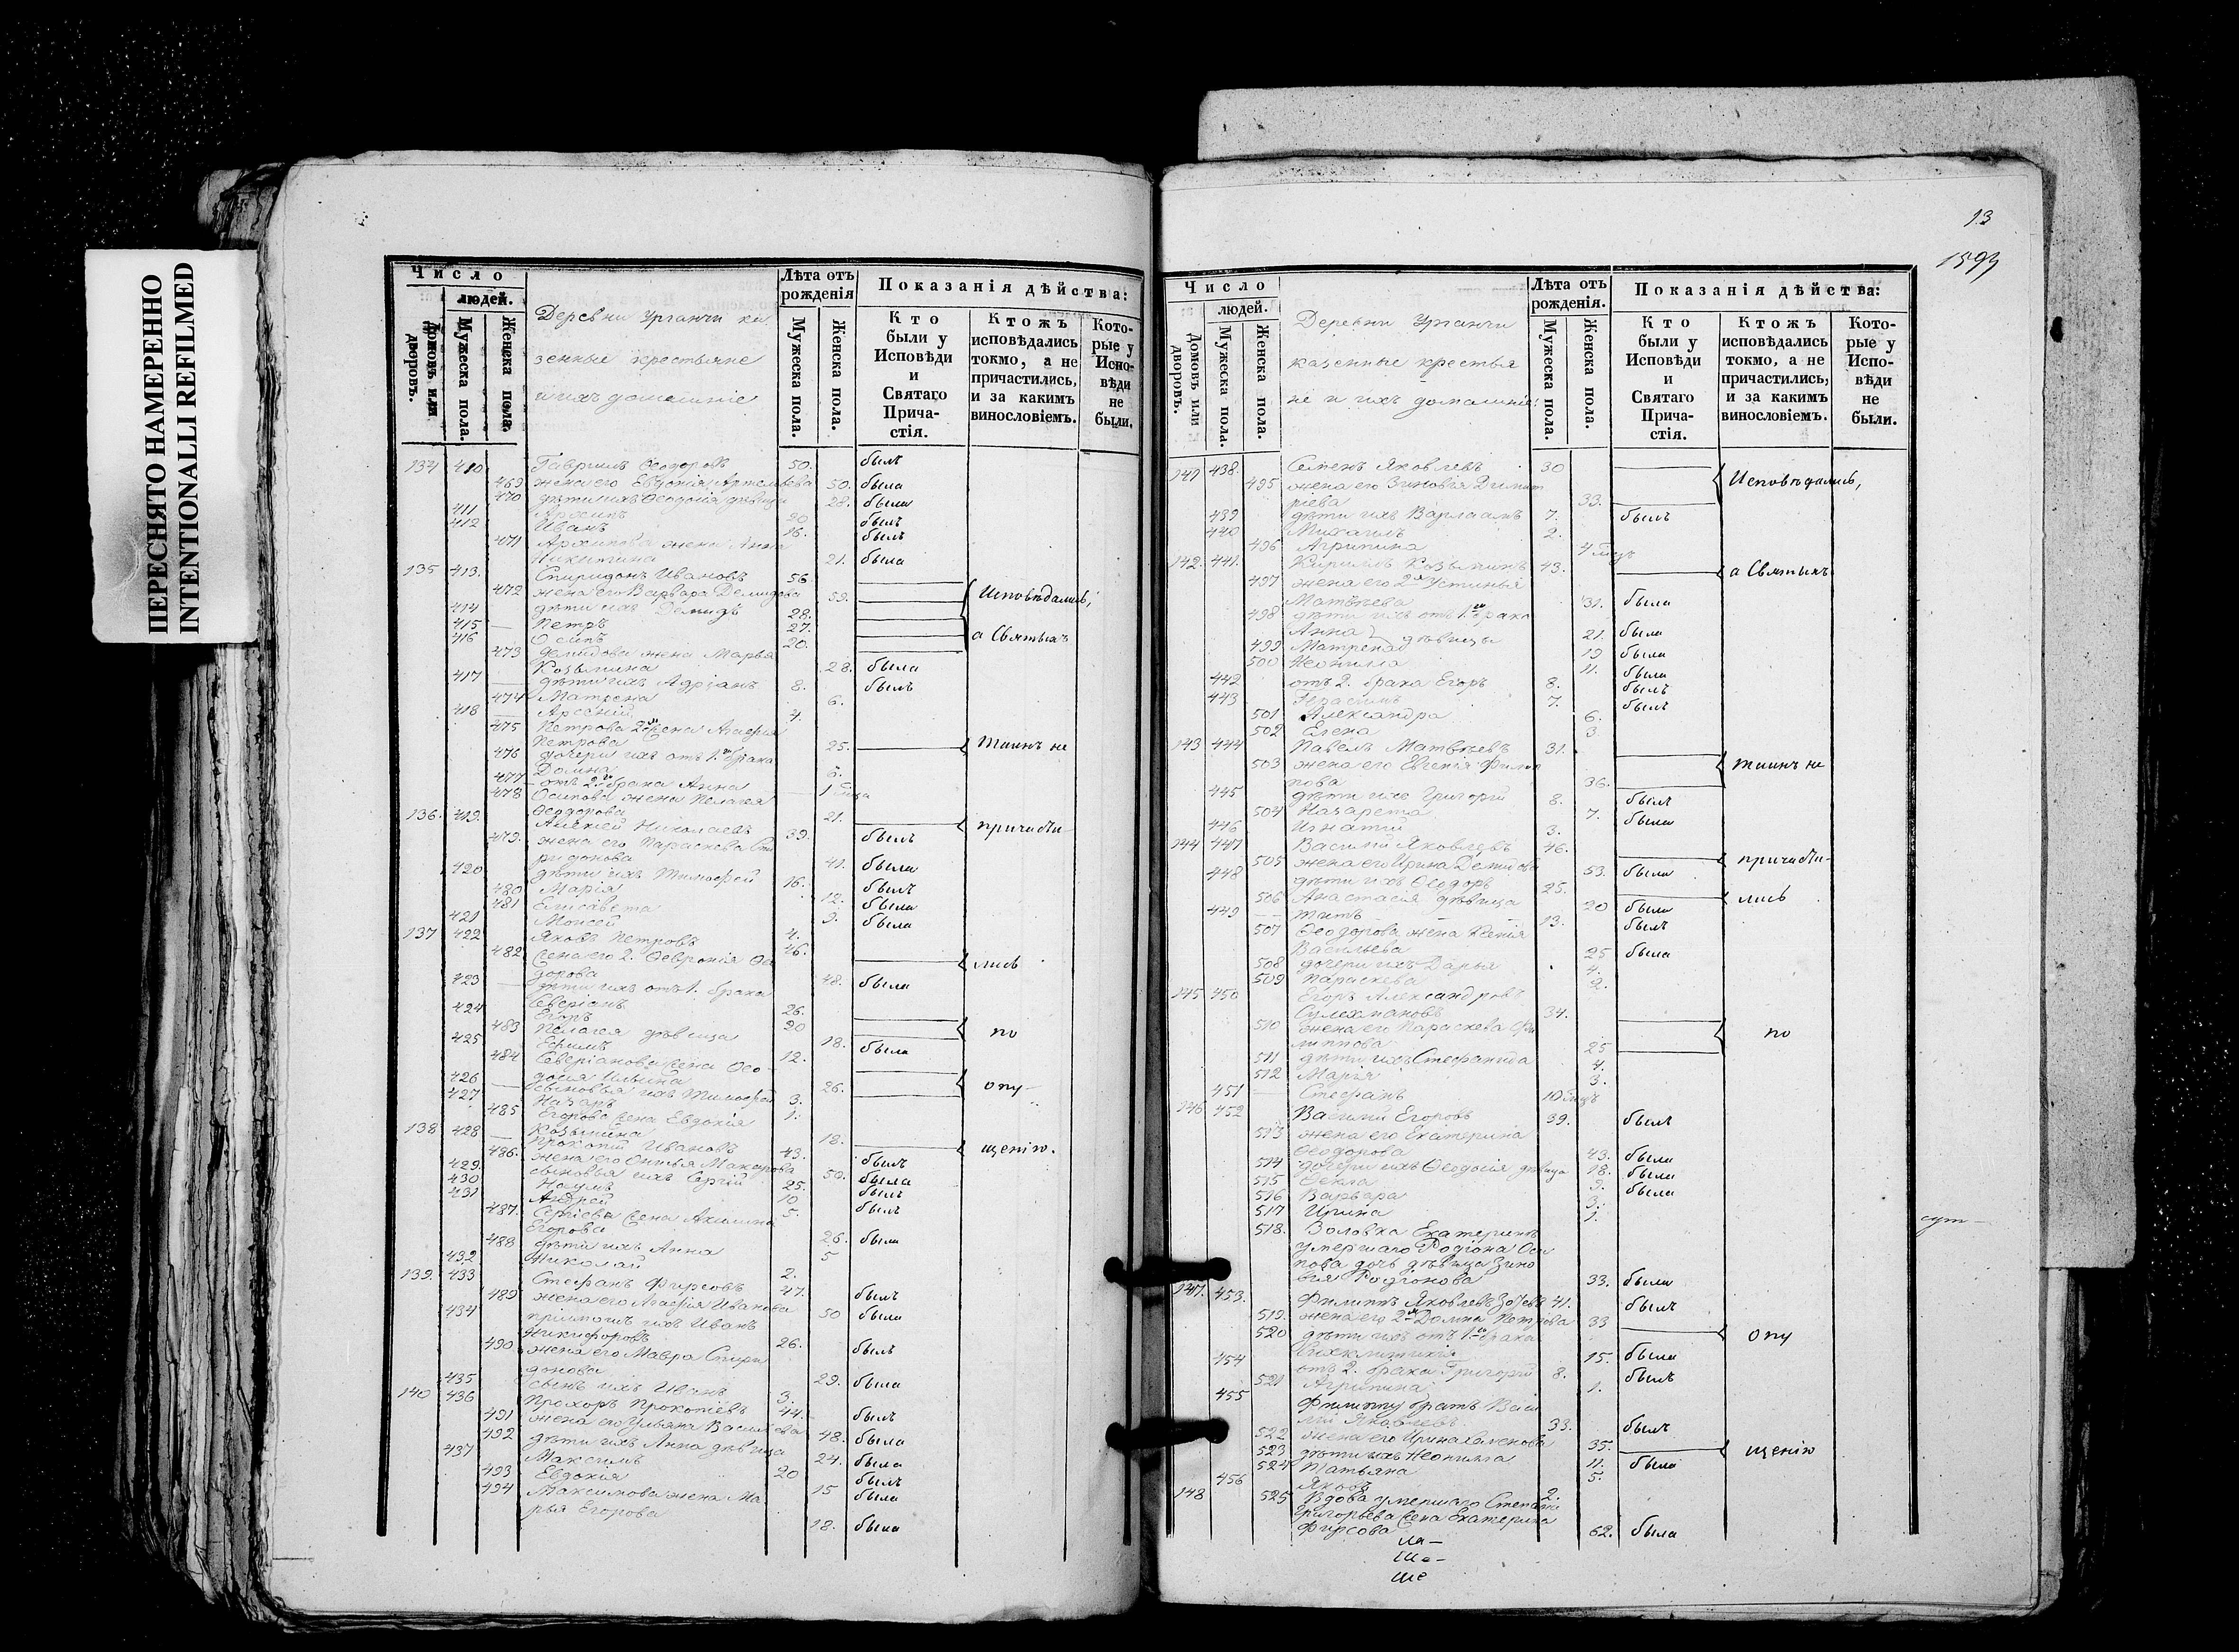 ПЕРЕСНЯТО НАМЕРЕННО
INTENTIONALLI REFILMED
Число
людей.
Домовъ или дворовъ.
Мужеска пола.
Женска пола.
Деревни Урганчи ка
зенные крестьяне
и ихъ домашніе
Лѣта отъ рожденія
Мужеска пола.
Женска пола.
Показанія дѣйства:
Кто были у Исповѣди и Святаго Прича-стія.
Ктожъ исповѣдались токмо, а не причастились, и за какимъ винословіемъ.
Кото-рые у Испо-вѣди не были.
134 410 Гавріилъ Ѳеодоровъ 50. былъ
469 жена его Евдокія Артемьева 50. была
470 дѣти ихъ Ѳеодосія дѣвица 28. была
411 Архипъ 20 былъ
412 Иванъ 16. былъ
471 Архипова жена Анна
Никитина 21. была
135 413. Спиридонъ Ивановъ 56.
472 жена его Варвара Демидова 59. Исповѣдались,
414 дѣти ихъ Демидъ 28.
415 Петръ 27.
416 Осипъ 20. а Святыхъ
473 Демидова жена Марья
Козьмина 28. была
417 дѣти ихъ Адріанъ 8. былъ
474 Матрена 6.
418 Арсеній 4.
475 Петрова 2я жена Агафія
Петрова 25. Таинъ не
476 дочери ихъ отъ 1. брака
Домна 6.
477 отъ 2. брака Анна 1
478 Осипова жена Пелагея
Ѳеодорова 21.
136. 419. Алексій Николаевъ 39. былъ причасти-
479. жена его Параскева Спи
ридонова 41. была
420 дѣти ихъ Тимофей 16. былъ
480 Марія 12. была
481 Елисавета 9. была
421 Моисей 4.
137 422 Яковъ Петровъ 46.
482 жена его 2. Ѳевронія Ѳео
дорова 48. была лись
423 дѣти ихъ отъ 1. брака
Северіанъ 26.
424 Егоръ 20
483 Пелагея дѣвица 18. была по
425 Ефимъ 12.
484 Северіанова жена Ѳео
досія Ильина 26.
426 сыновья ихъ Тимофей 3. опу-
427 Назаръ 1.
485 Егорова жена Евдокія
Козьмина 18.
138 428 Прокопій Ивановъ 43. былъ щенію.
486. жена его Софья Макарова 50. была
429. сыновья ихъ Сергій 25. былъ
430 Наумъ 10 былъ
431 Андрей 5.
487. Сергіева жена Акилина
Егорова 26. была
488 дѣти ихъ Анна 5
432 Николай 2.
139. 433 Стефанъ Фирсовъ 47. былъ
489 жена его Агафія Иванова 50 была
434 пріимышъ ихъ Иванъ
Никифоровъ 26. былъ
490 жена его Мавра Спири
донова 29. была
435 сынъ ихъ Иванъ 3.
140 436 Прохоръ Прокопіевъ 44. былъ
491 жена его Ульяна Васильева 48. была
492 дѣти ихъ Анна дѣвица 24. была
437 Максимъ 20 былъ
493 Евдокія 15 была
494 Максимова жена Ма
рья Егорова 18. была
13
1593
Число
людей.
Домовъ или дворовъ.
Мужеска пола.
Женска пола.
Деревни Урганчи
казенные крестья
не и ихъ домашніе:
Лѣта отъ рожденія.
Мужеска пола.
Женска пола.
Показанія дѣйства:
Кто были у Исповѣди и Святаго Прича-стія.
Ктожъ исповѣдались токмо, а не причастились, и за какимъ винословіемъ.
Кото-рые у Испо-вѣди не были.
141 438. Семенъ Яковлевъ 30
495 жена его Зиновія Димит Исповѣдались,
ріева 33.
439 дѣти ихъ Варлаамъ 7. былъ
440 Михаилъ 2.
496 Агрипина 4
142. 441. Кирилъ Козьминъ 43. а Святыхъ
497 жена его 2я Устинья
Матвѣева 31. была
498 дѣти ихъ отъ 1. брака
Анна 21. была
499 Матрена дѣвицы 19 была
500 Неонила 11. была
442 отъ 2. брака Егоръ 8. былъ
443 Герасимъ 7. былъ
501 Александра 6.
502 Елена 3.
143 444 Павелъ Матвѣевъ 31.
503 жена его Евгенія Филип Таинъ не
пова 36.
445 дѣти ихъ Григорій 8. былъ
504 Назарета 7. была
446 Игнатій 3.
144 447 Василій Яковлевъ 46.
505 жена его Ирина Демидова 53. была причасти-
448 дѣти ихъ Ѳеодоръ 25.
506 Анастасія дѣвица 20 была лись
449 Титъ 13. былъ
507 Ѳеодорова жена Ксенія
Васильева 25 была
508 дочери ихъ Дарья 4.
509 Параскева 2.
145 450 Егоръ Александровъ
Сулехмановъ 34.
510 жена его Параскева Фи по
липпова 25
511 дѣти ихъ Стефанида 4.
512 Марія 3.
451 Стефанъ 10
146 452 Василій Егоровъ 39. былъ
513 жена его Екатерина
Ѳеодорова 43. была
514 дочери ихъ Ѳеодосія дѣвица 18. была
515 Ѳекла 9. была
516 Варвара 3.
517 Ирина 1.
518. Золовка Екатеринѣ
умершаго Родіона Оси
пова дочь дѣвица Зино
вія Родіонова 33. была
147. 453. Филиппъ Яковлевъ Зотевъ 41. былъ
519. жена его 2я Домна Петрова 33
520 дѣти ихъ отъ 1. брака опу
15. была
454 отъ 2. брака Григорій 8. былъ
521 Агрипина 1.
455 Филиппу братъ Васи
лій Яковлевъ 33. былъ
522 жена его Ирина Семенова 35. щенію
523 дѣти ихъ Неонила 11. была
524 Татьяна 5.
456 Яковъ 2.
148 525 Вдова умершаго Степана
Григорьева жена Екатерина
Фирсова 62. была